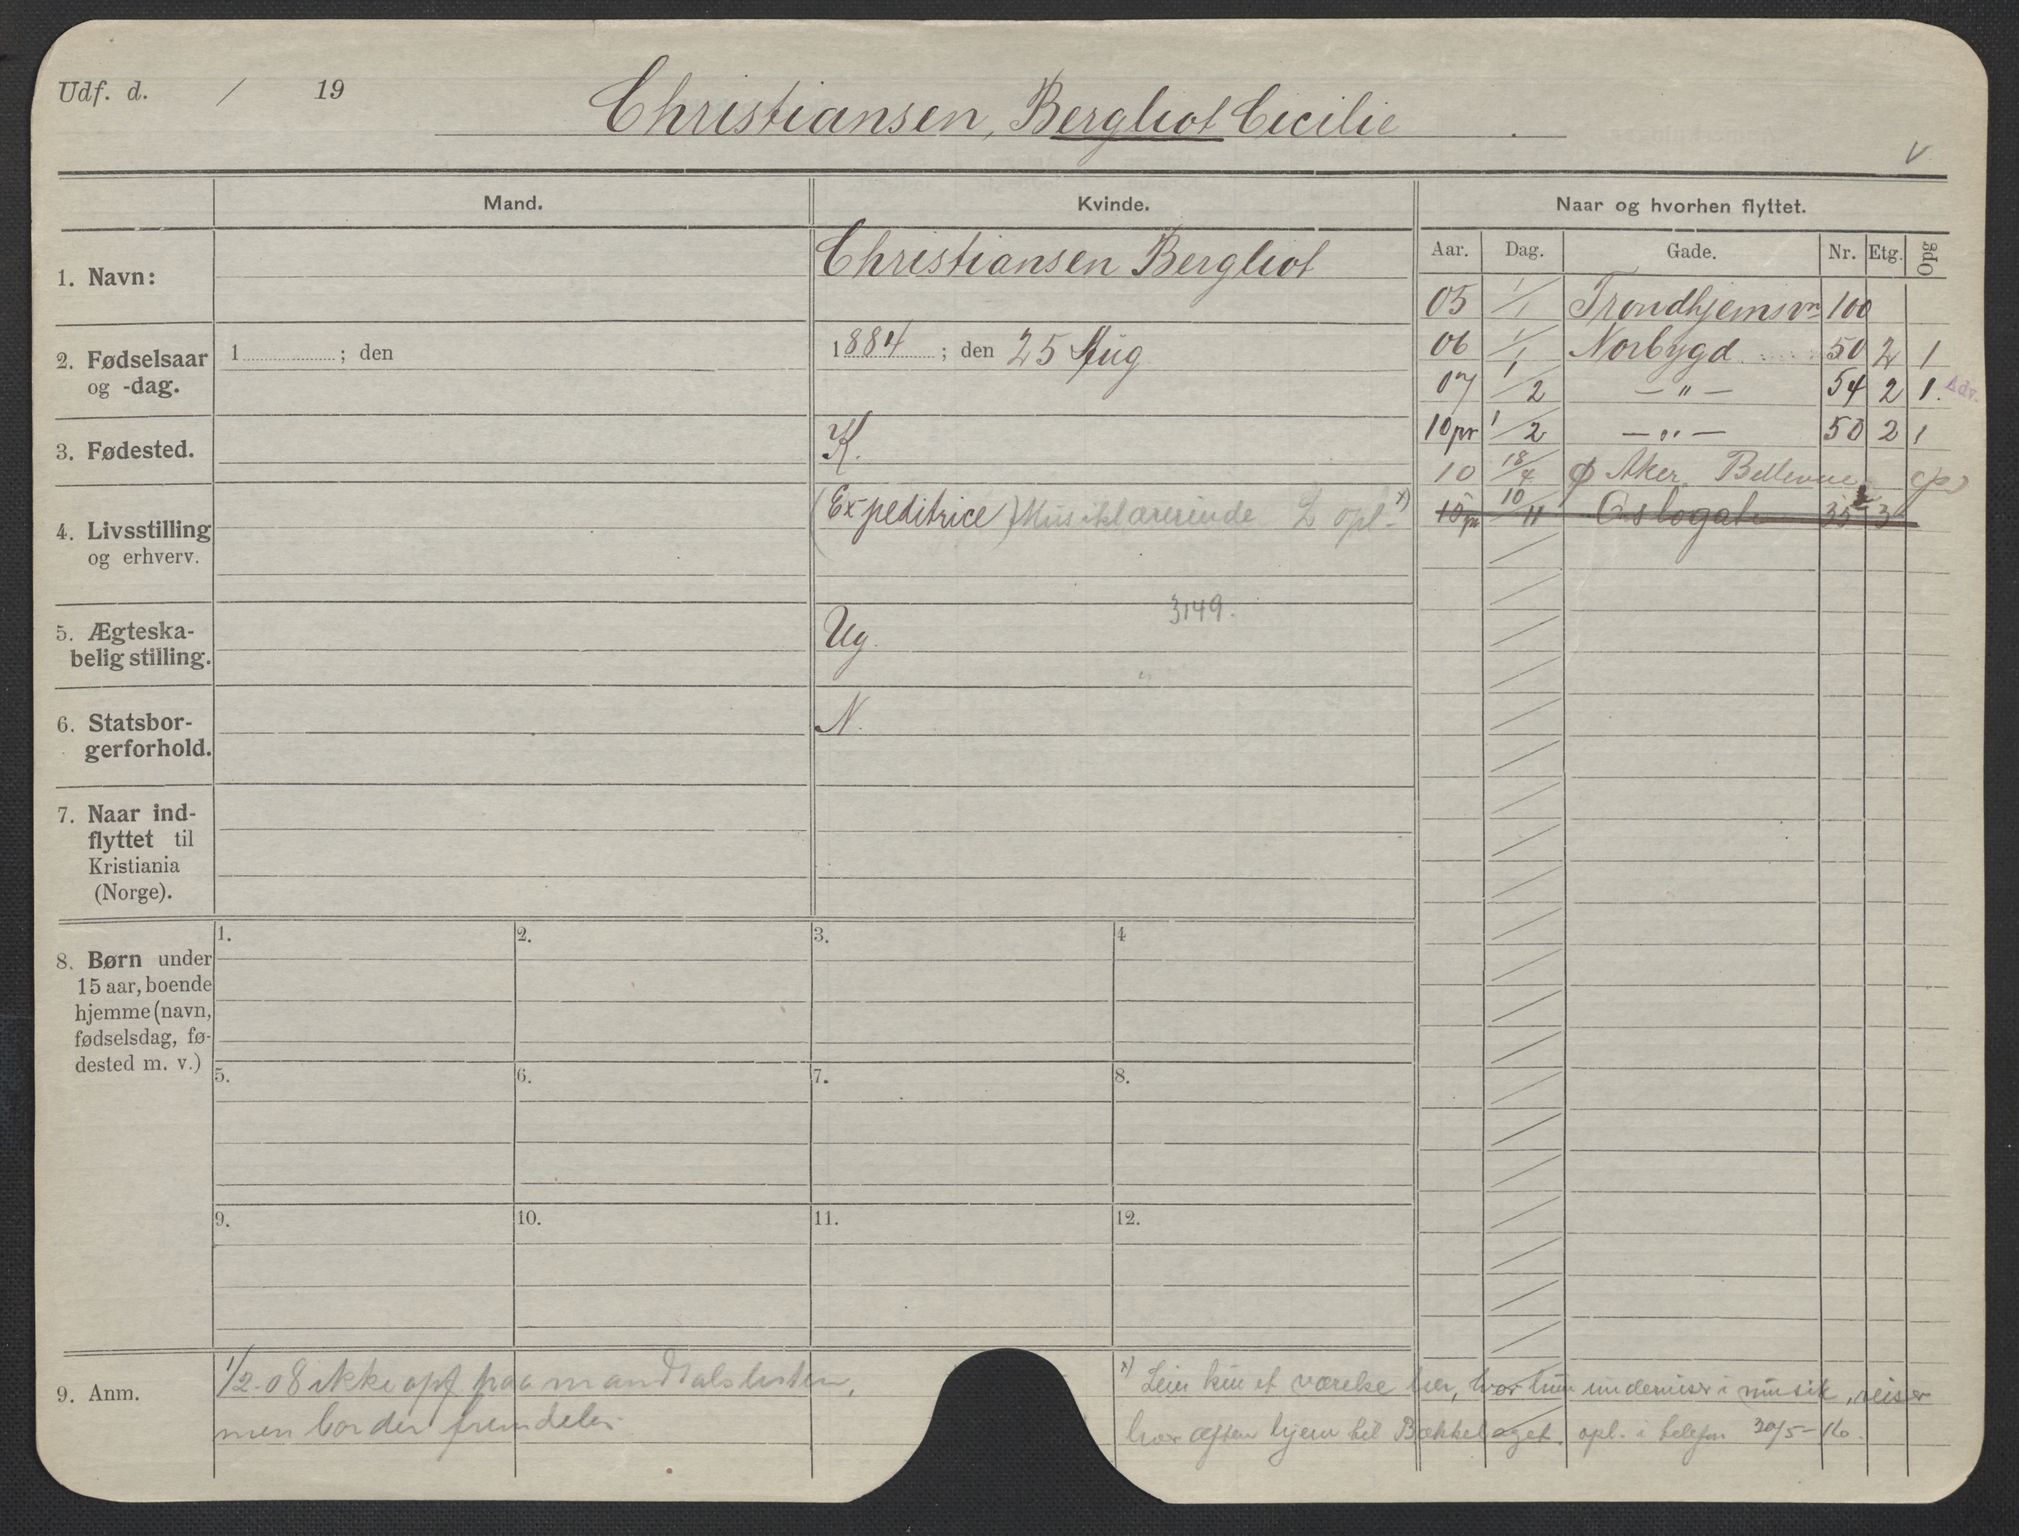 Udf. d. / 19
Christiansen, Bergliot Cicilie
v
Mand.
Kvinde.
Naar og hvorhen flyttet.
Aar. Dag. Gade. Nr. Etg. Opg
1. Navn:
Christiansen Bergliot
2. Fødselsaar
og -dag.
1 ; den
1884 ; den 25 Aug
3. Fødested.
K.
4. Livsstilling
og erhverv.
(Expeditrice) Musiklærerinde L opl. x)
3149.
5. Ægteska-
belig stilling.
Ug.
6. Statsbor-
gerforhold.
N.
7. Naar ind-
flyttet til
Kristiania
(Norge).
05 1/1 Trondhjemsvn 100
06 1/1 Norbygd 50 2 1
07 1/2 — " — 54 2 1. Adv.
10 pr 1/2 — " — 50 2 1
10 18/4 Ø Aker Bellevue
15 pr 10/11 Oslogat 35 3
8. Børn under
15 aar, boende
hjemme (navn,
fødselsdag, fø-
dested m. v.)
1. 2. 3. 4
5. 6. 7. 8.
9. 10. 11. 12.
9. Anm.
1/2-08 ikke opf paa mandtalslisten,
men bor der fremdeles.
x) Leier kun et værelse her, hvor hun underviser i musik, reiser
hver aften hjem til Bækkelaget. opl. i telefon 30/5-16.